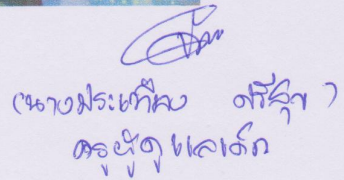 (นางประเทือง ศรีสุข)
ครูผู้ดูแลเด็ก